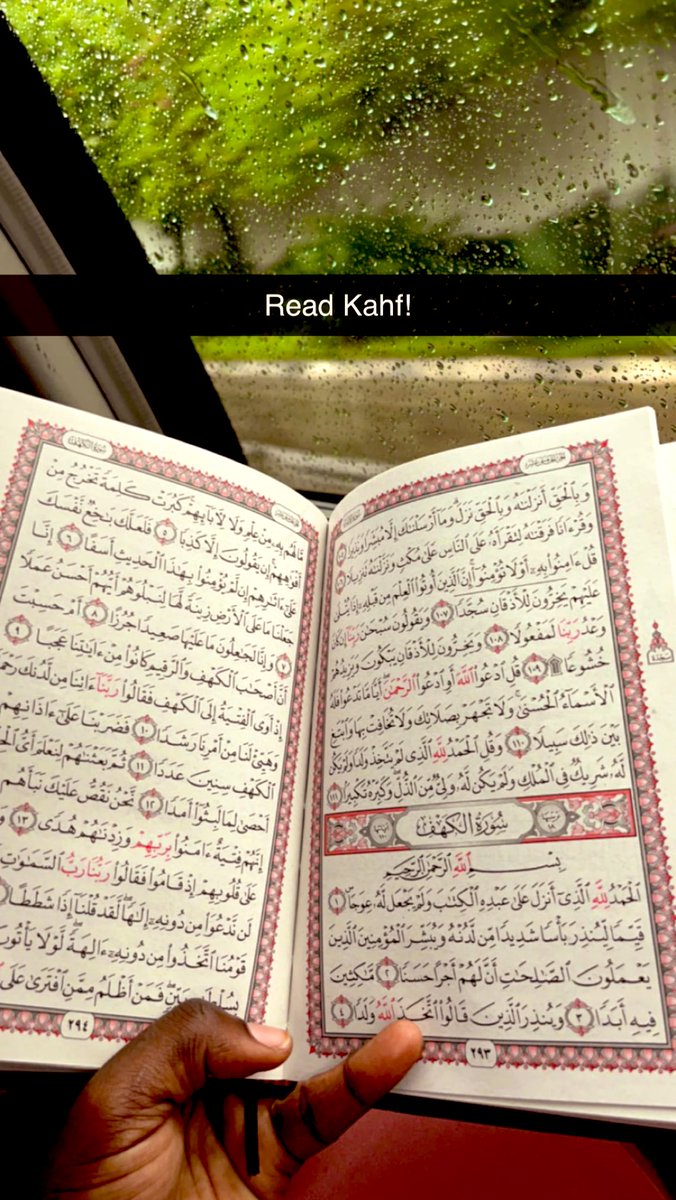 Read Kahf!
وَبِالْحَقِّ أَنزَلْنَٰهُ وَبِالْحَقِّ نَزَلَ وَمَآ أَرْسَلْنَٰكَ إِلَّا مُبَشِّرًا وَنَذِيرًا ١٠٥
وَقُرْءَانًا فَرَقْنَٰهُ لِتَقْرَأَهُۥ عَلَى ٱلنَّاسِ عَلَىٰ مُكْثٍ وَنَزَّلْنَٰهُ تَنزِيلًا ١٠٦
قُلْ ءَامِنُوا۟ بِهِۦٓ أَوْ لَا تُؤْمِنُوٓا۟ إِنَّ ٱلَّذِينَ أُوتُوا۟ ٱلْعِلْمَ مِن قَبْلِهِۦٓ إِذَا يُتْلَىٰ
عَلَيْهِمْ يَخِرُّونَ لِلْأَذْقَانِ سُجَّدًا ١٠٧ وَيَقُولُونَ سُبْحَٰنَ رَبِّنَآ إِن كَانَ
وَعْدُ رَبِّنَا لَمَفْعُولًا ١٠٨ وَيَخِرُّونَ لِلْأَذْقَانِ يَبْكُونَ وَيَزِيدُهُمْ
خُشُوعًا ۩ ١٠٩ قُلِ ٱدْعُوا۟ ٱللَّهَ أَوِ ٱدْعُوا۟ ٱلرَّحْمَٰنَ أَيًّا مَّا تَدْعُوا۟ فَلَهُ
ٱلْأَسْمَآءُ ٱلْحُسْنَىٰ وَلَا تَجْهَرْ بِصَلَاتِكَ وَلَا تُخَافِتْ بِهَا وَٱبْتَغِ
بَيْنَ ذَٰلِكَ سَبِيلًا ١١٠ وَقُلِ ٱلْحَمْدُ لِلَّهِ ٱلَّذِى لَمْ يَتَّخِذْ وَلَدًا وَلَمْ يَكُن
لَّهُۥ شَرِيكٌ فِى ٱلْمُلْكِ وَلَمْ يَكُن لَّهُۥ وَلِىٌّ مِّنَ ٱلذُّلِّ وَكَبِّرْهُ تَكْبِيرًا ١١١
سُورَةُ ٱلْكَهْفِ
بِسْمِ ٱللَّهِ ٱلرَّحْمَٰنِ ٱلرَّحِيمِ
ٱلْحَمْدُ لِلَّهِ ٱلَّذِىٓ أَنزَلَ عَلَىٰ عَبْدِهِ ٱلْكِتَٰبَ وَلَمْ يَجْعَل لَّهُۥ عِوَجَا ١
قَيِّمًا لِّيُنذِرَ بَأْسًا شَدِيدًا مِّن لَّدُنْهُ وَيُبَشِّرَ ٱلْمُؤْمِنِينَ ٱلَّذِينَ
يَعْمَلُونَ ٱلصَّٰلِحَٰتِ أَنَّ لَهُمْ أَجْرًا حَسَنًا ٢ مَّٰكِثِينَ
فِيهِ أَبَدًا ٣ وَيُنذِرَ ٱلَّذِينَ قَالُوا۟ ٱتَّخَذَ ٱللَّهُ وَلَدًا ٤
٢٩٣
سجدة
سُورَةُ الكَهْفِ
مَّا لَهُم بِهِۦ مِنْ عِلْمٍ وَلَا لِـَٔابَآئِهِمْ كَبُرَتْ كَلِمَةً تَخْرُجُ مِنْ
أَفْوَٰهِهِمْ إِن يَقُولُونَ إِلَّا كَذِبًا ٥ فَلَعَلَّكَ بَٰخِعٌ نَّفْسَكَ
عَلَىٰٓ ءَاثَٰرِهِمْ إِن لَّمْ يُؤْمِنُوا۟ بِهَٰذَا ٱلْحَدِيثِ أَسَفًا ٦ إِنَّا
جَعَلْنَا مَا عَلَى ٱلْأَرْضِ زِينَةً لَّهَا لِنَبْلُوَهُمْ أَيُّهُمْ أَحْسَنُ عَمَلًا
٧ وَإِنَّا لَجَٰعِلُونَ مَا عَلَيْهَا صَعِيدًا جُرُزًا ٨ أَمْ حَسِبْتَ
أَنَّ أَصْحَٰبَ ٱلْكَهْفِ وَٱلرَّقِيمِ كَانُوا۟ مِنْ ءَايَٰتِنَا عَجَبًا ٩
إِذْ أَوَى ٱلْفِتْيَةُ إِلَى ٱلْكَهْفِ فَقَالُوا۟ رَبَّنَآ ءَاتِنَا مِن لَّدُنكَ
وَهَيِّئْ لَنَا مِنْ أَمْرِنَا رَشَدًا ١٠ فَضَرَبْنَا عَلَىٰٓ ءَاذَانِهِمْ
ٱلْكَهْفِ سِنِينَ عَدَدًا ١١ ثُمَّ بَعَثْنَٰهُمْ لِنَعْلَمَ أَىُّ
أَحْصَىٰ لِمَا لَبِثُوٓا۟ أَمَدًا ١٢ نَّحْنُ نَقُصُّ عَلَيْكَ نَبَأَهُم
إِنَّهُمْ فِتْيَةٌ ءَامَنُوا۟ بِرَبِّهِمْ وَزِدْنَٰهُمْ هُدًى ١٣
عَلَىٰ قُلُوبِهِمْ إِذْ قَامُوا۟ فَقَالُوا۟ رَبُّنَا رَبُّ ٱلسَّمَٰوَٰتِ
لَن نَّدْعُوَا۟ مِن دُونِهِۦٓ إِلَٰهًا لَّقَدْ قُلْنَآ إِذًا شَطَطًا
قَوْمُنَا ٱتَّخَذُوا۟ مِن دُونِهِۦٓ ءَالِهَةً لَّوْلَا يَأْتُونَ
فَمَنْ أَظْلَمُ مِمَّنِ ٱفْتَرَىٰ عَلَى
٢٩٤